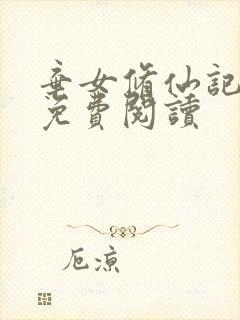 棄女修仙記
免費閱讀
厄涼